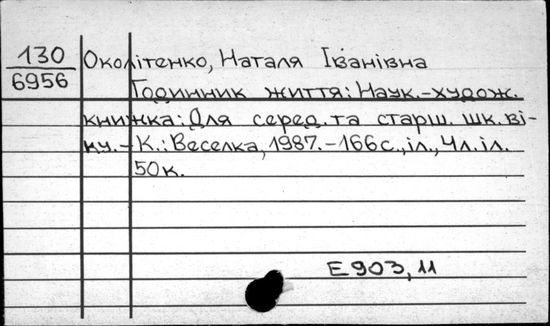 130
6956
Околітенко, Наталя Іванівна
Годинник життя: Наук.-худож.
книжка: Для серед. та старш. шк. ві-
ку. - К.: Веселка, 1987. - 166 с., іл., 4 л. іл.
50 к.
Е 903, 11